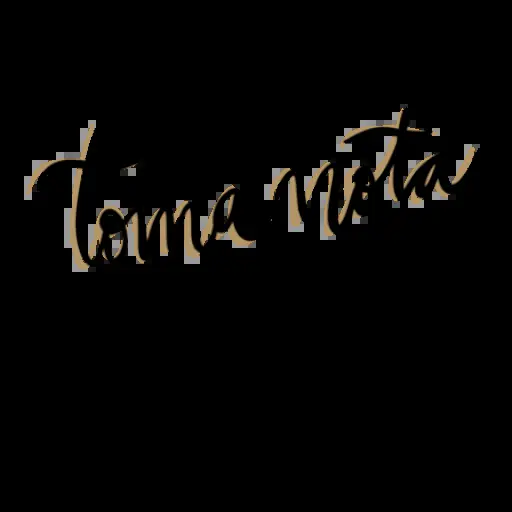 Toma nota